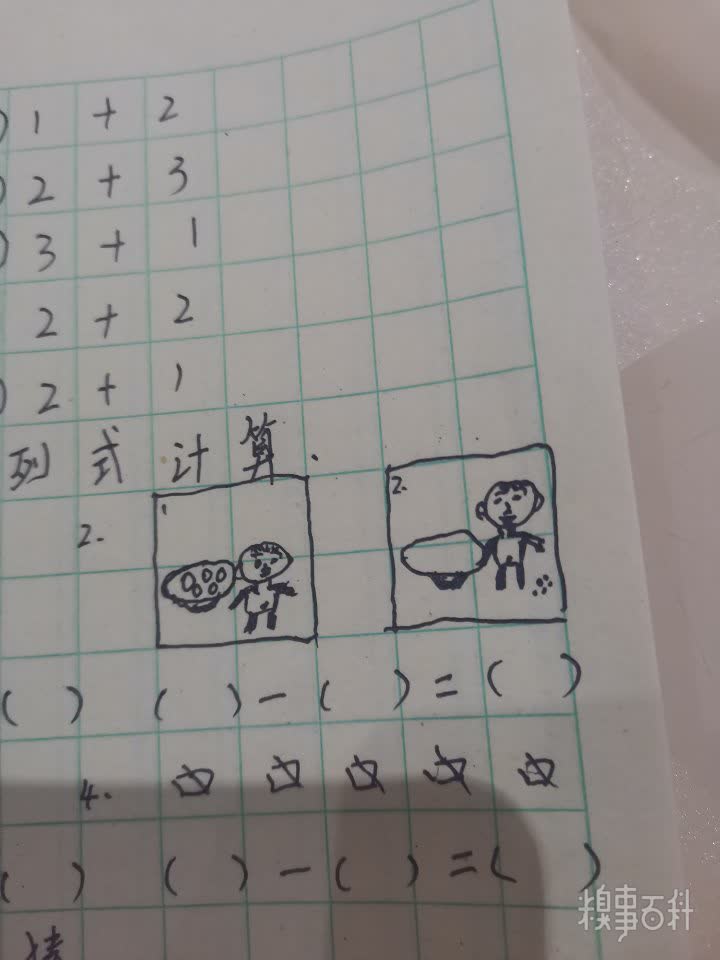 ) 1 + 2
) 2 + 3
) 3 + 1
2 + 2
) 2 + 1
列式计算.
2. 1. 2.
( ) ( ) - ( ) = ( )
4.
( ) ( ) - ( ) = ( )
糗事百科